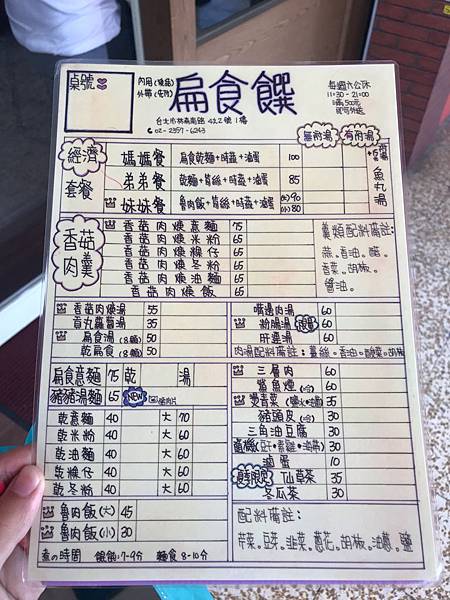 桌號
內用(燒燙)
外帶(任附)
扁食饌
每週六公休
11:30-21:00
滿500元
即可外送
台北市林森南路 422號 1樓
02-2357-6243
無附湯
有附湯
經濟
套餐
媽媽餐 扁食乾麵+時蔬+滷蛋 100
弟弟餐 乾麵+骨絲+時蔬+滷蛋 85
妹妹餐 魯肉飯+骨絲+時蔬+滷蛋 (大)90 (小)80
魚丸湯
香菇
肉羹
香菇肉焿意麵 75
香菇肉焿米粉 65
香菇肉焿粿仔 65
香菇肉焿冬粉 65
香菇肉焿油麵 65
香菇肉焿飯 65
羹類配料備註:
蒜。香油。醋。
香菜。胡椒。
醬油。
香菇肉焿湯 55
貢丸蘿蔔湯 35
扁食湯(8顆) 50
乾扁食(8顆) 50
嘴邊肉湯 60
粉腸湯 限量 60
肝連湯 60
肉湯配料備註: 薑絲。香油。酸菜。胡椒
扁食意麵 75 乾 湯
豬豬湯麵 65 NEW
乾意麵 40 大 70
乾米粉 40 大 60
乾油麵 40 大 60
乾粿仔 40 大 60
乾冬粉 40 大 60
魯肉飯(大) 45
魯肉飯(小) 30
煮の時間 餛飩:7-9分 麵食8-10分
三層肉 60
鯊魚煙(小) 60
燙青菜 35
豬頭皮(小) 30
三角油豆腐 30
30
滷蛋 10
仙草茶 35
冬瓜茶 30
配料備註:
芹菜。豆芽。韭菜。蔥花。胡椒。油蔥。鹽